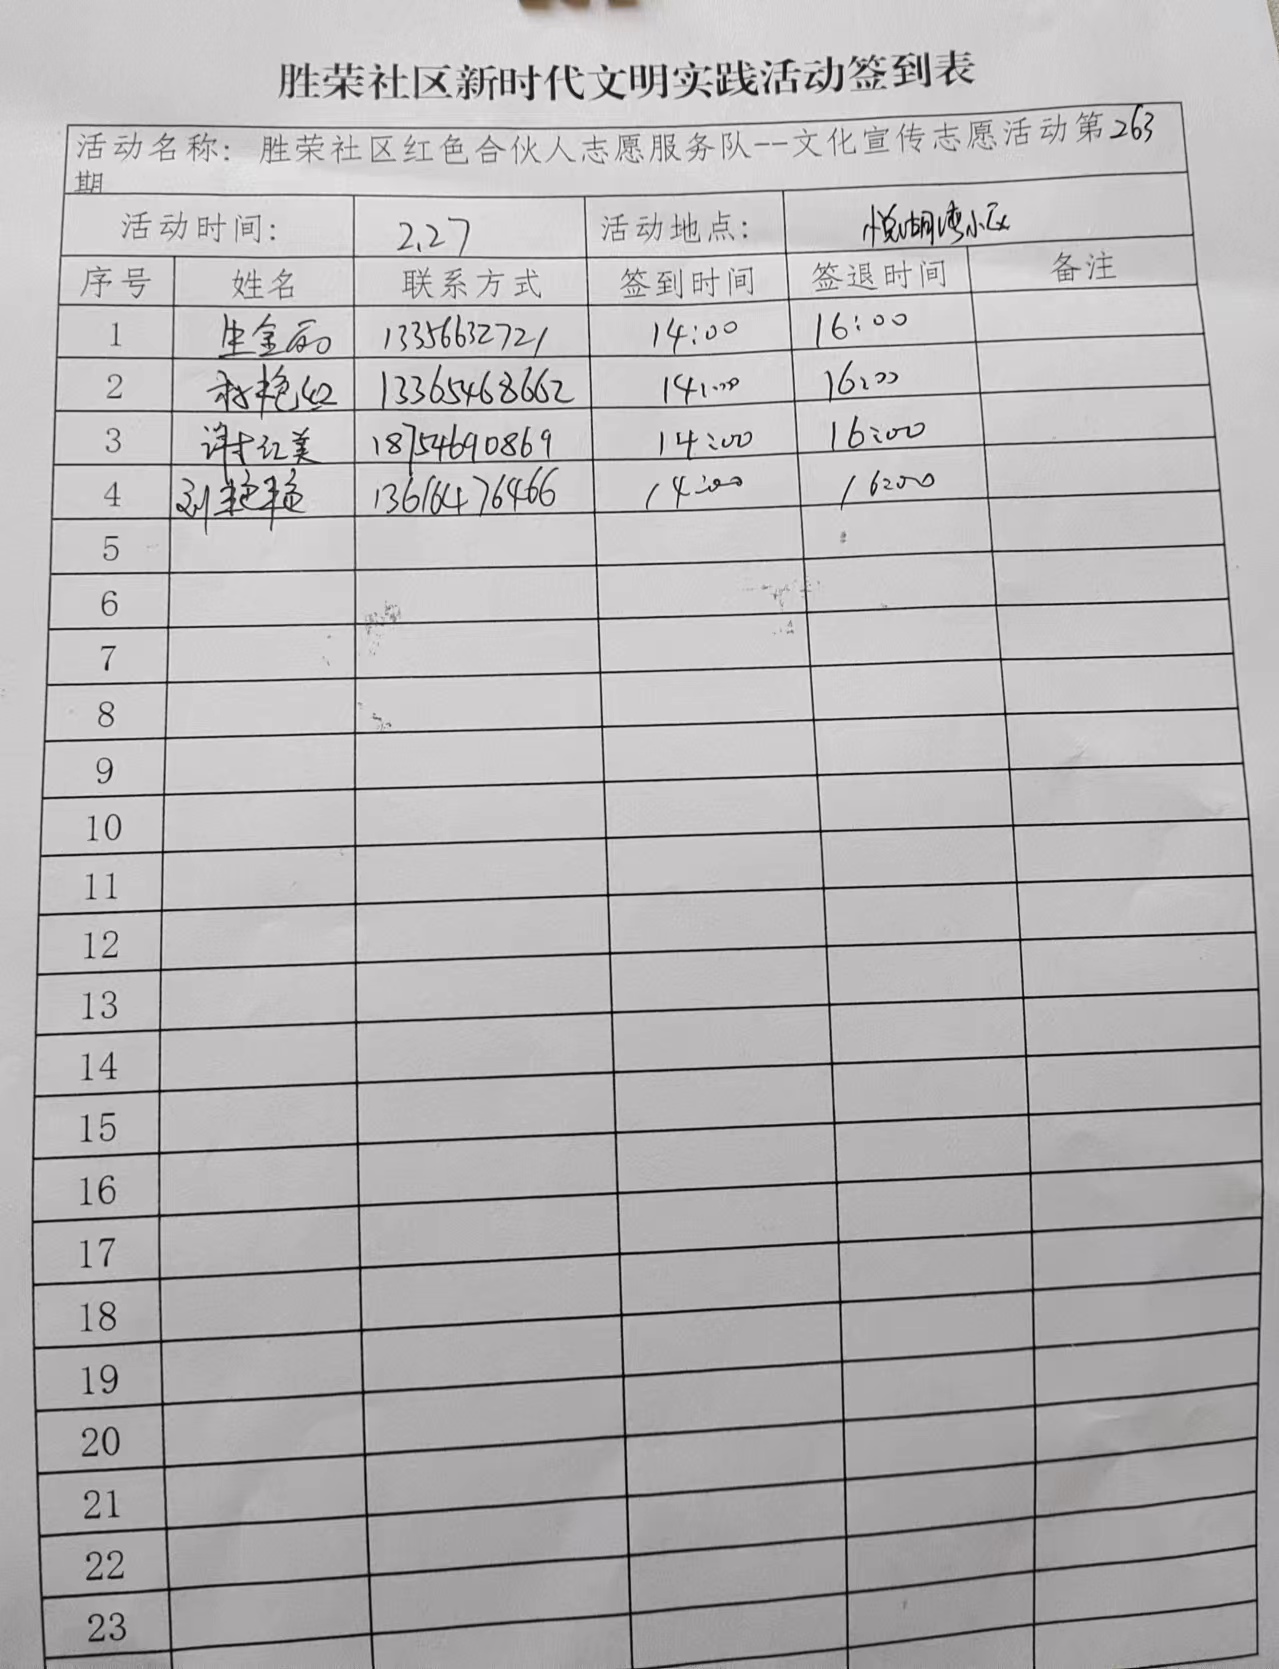 胜荣社区新时代文明实践活动签到表
活动名称：胜荣社区红色合伙人志愿服务队--文化宣传志愿活动第263
期
活动时间： 2.27 活动地点： 悦湖湾小区
序号 姓名 联系方式 签到时间 签退时间 备注
1 生金丽 13356632721 14:00 16:00
2 艳红 13365468662 14:00 16:00
3 谢红美 18754690869 14:00 16:00
4 刘艳艳 13616476466 14:00 16:00
5
6
7
8
9
10
11
12
13
14
15
16
17
18
19
20
21
22
23